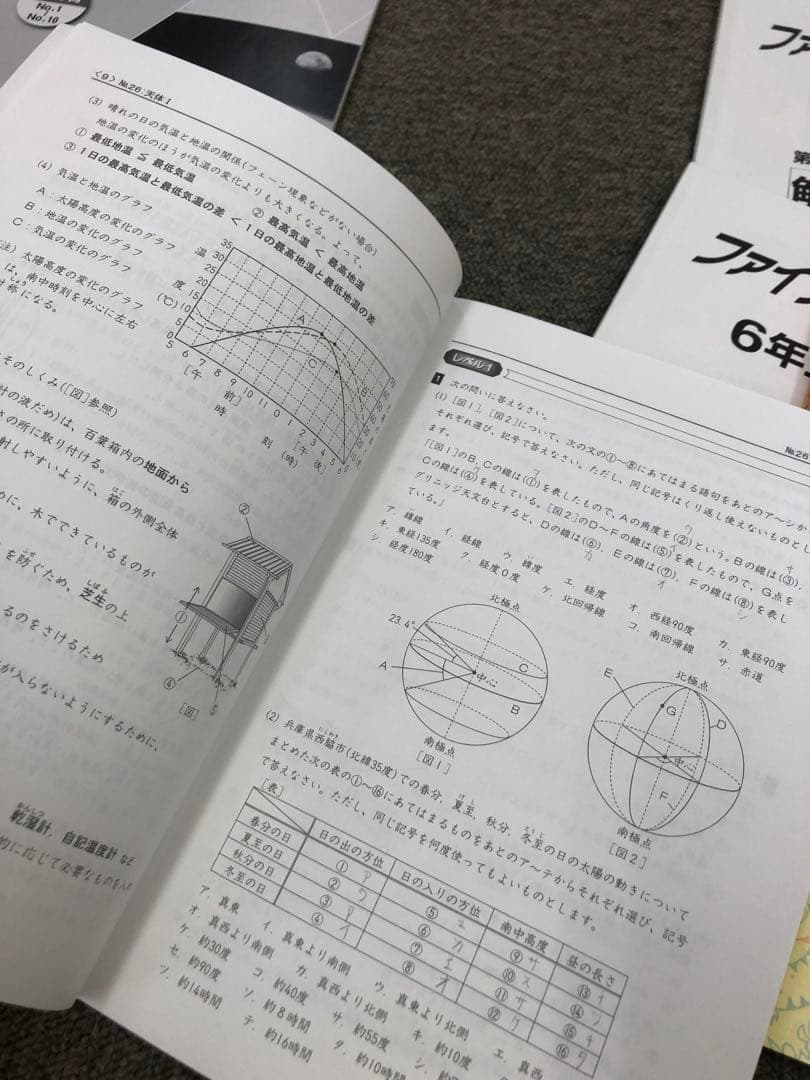 No.1
No.10
〈9〉No.26:天体Ⅰ
(3) 晴れの日の気温と地温の関係(フェーン現象などがない場合)
地温の変化のほうが気温の変化よりも大きくなる。よって、
① 最低地温 ≦ 最低気温
② 最高気温 < 最高地温
③ 1日の最高気温と最低気温の差 < 1日の最高地温と最低地温の差
(4) 気温と地温のグラフ
A:太陽高度の変化のグラフ
B:地温の変化のグラフ
C:気温の変化のグラフ
(注) 太陽高度の変化のグラフ
は、南中時刻を中心に左右
称になる。
温度(℃)
35
30
25
20
15
10
5
0
A
B
C
5 6 7 8 9 10 11 0 1 2 3 4 5 6
[午前] 時刻(時) [午後]
そのしくみ([図]参照)
計の液だめ)は、百葉箱内の地面から
さの所に取り付ける。
射しやすいように、箱の外側全体
めに、木でできているものが
を防ぐため、芝生の上
るのをさけるため
が入らないようにするために、
乾湿計, 自記温度計など
的に応じて必要なものを入れ
①
②
④
⑤
[図]
レベル1
No.26
1 次の問いに答えなさい。
(1) [図1]、[図2]について、次の文の①~⑧にあてはまる語句をあとのア~シから
それぞれ選び、記号で答えなさい。ただし、同じ記号はくり返し使えないものとし
ます。
「[図1]のB、Cの線は(①)を表したもので、Aの角度を(②)という。Bの線は(③)、
Cの線は(④)を表している。[図2]のD~Fの線は(⑤)を表したもので、G点を
グリニッジ天文台とすると、Dの線は(⑥)、Eの線は(⑦)、Fの線は(⑧)を表し
ている。」
ア. 緯線 イ. 経線 ウ. 緯度 エ. 経度 オ. 西経90度 カ. 東経90度
キ. 東経135度 ク. 経度0度 ケ. 北回帰線 コ. 南回帰線 サ. 赤道
シ. 経度180度
北極点
23.4°
A
中心
C
B
南極点
[図1]
北極点
E
G
D
中心
F
南極点
[図2]
(2) 兵庫県西脇市(北緯35度)での春分、夏至、秋分、冬至の日の太陽の動きについて
まとめた次の表の①~⑯にあてはまるものをあとのア~テからそれぞれ選び、記号
で答えなさい。ただし、同じ記号を何度使ってもよいものとします。
[表]
日の出の方位 日の入りの方位 南中高度 昼の長さ
春分の日 ① ア ⑤ エ ⑨ サ ⑬
夏至の日 ② ウ ⑥ カ ⑩ ス ⑭ ツ
秋分の日 ③ ア ⑦ エ ⑪ サ ⑮
冬至の日 ④ イ ⑧ オ ⑫ ケ ⑯ タ
ア. 真東 イ. 真東より南側 ウ. 真東より北側 エ. 真西
オ. 真西より南側 カ. 真西より北側 キ. 約10度
ケ. 約30度 コ. 約40度 サ. 約55度 シ.
セ. 約90度 ソ. 約8時間 タ. 約10時間
ツ. 約14時間 テ. 約16時間
ファイ
第
解
ファイ
6年